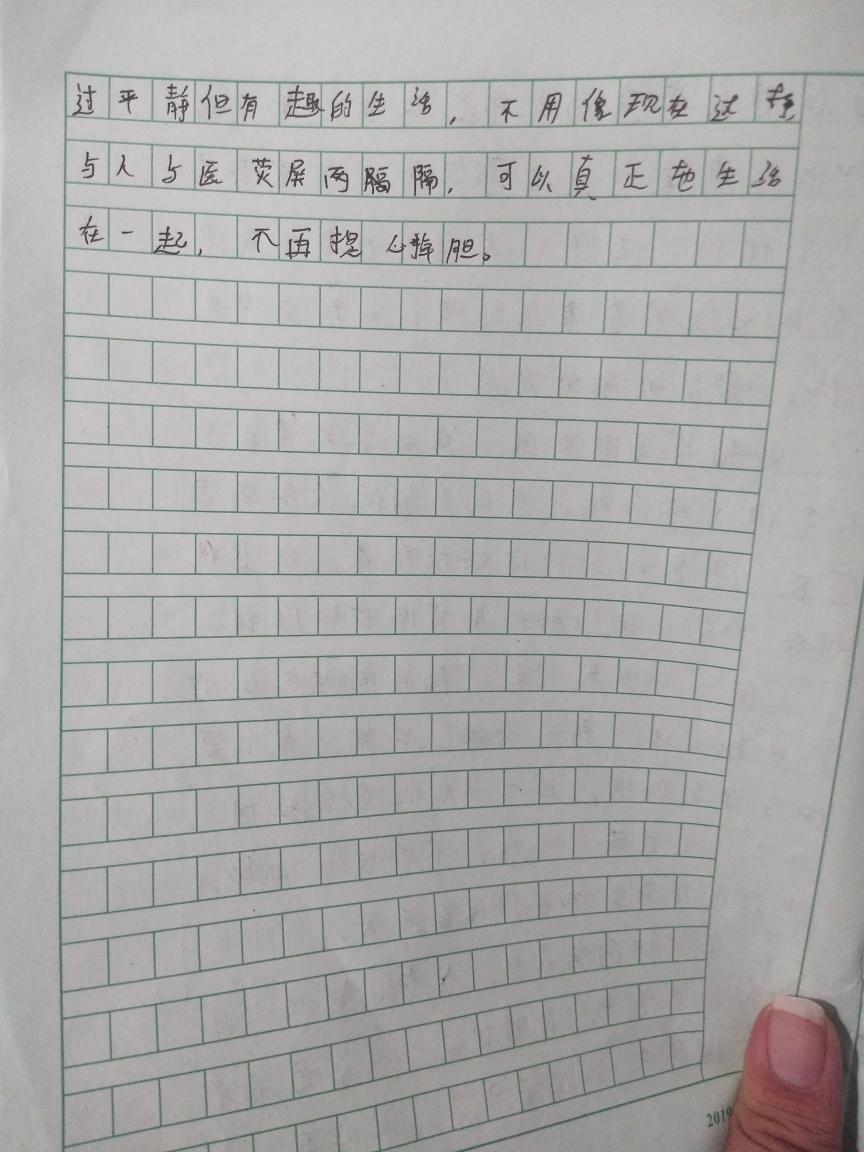 过平静但有趣的生活，不用像现在这样
与人与医荧屏两隔隔，可以真正地生活
在一起，不再提心掉胆。
2019